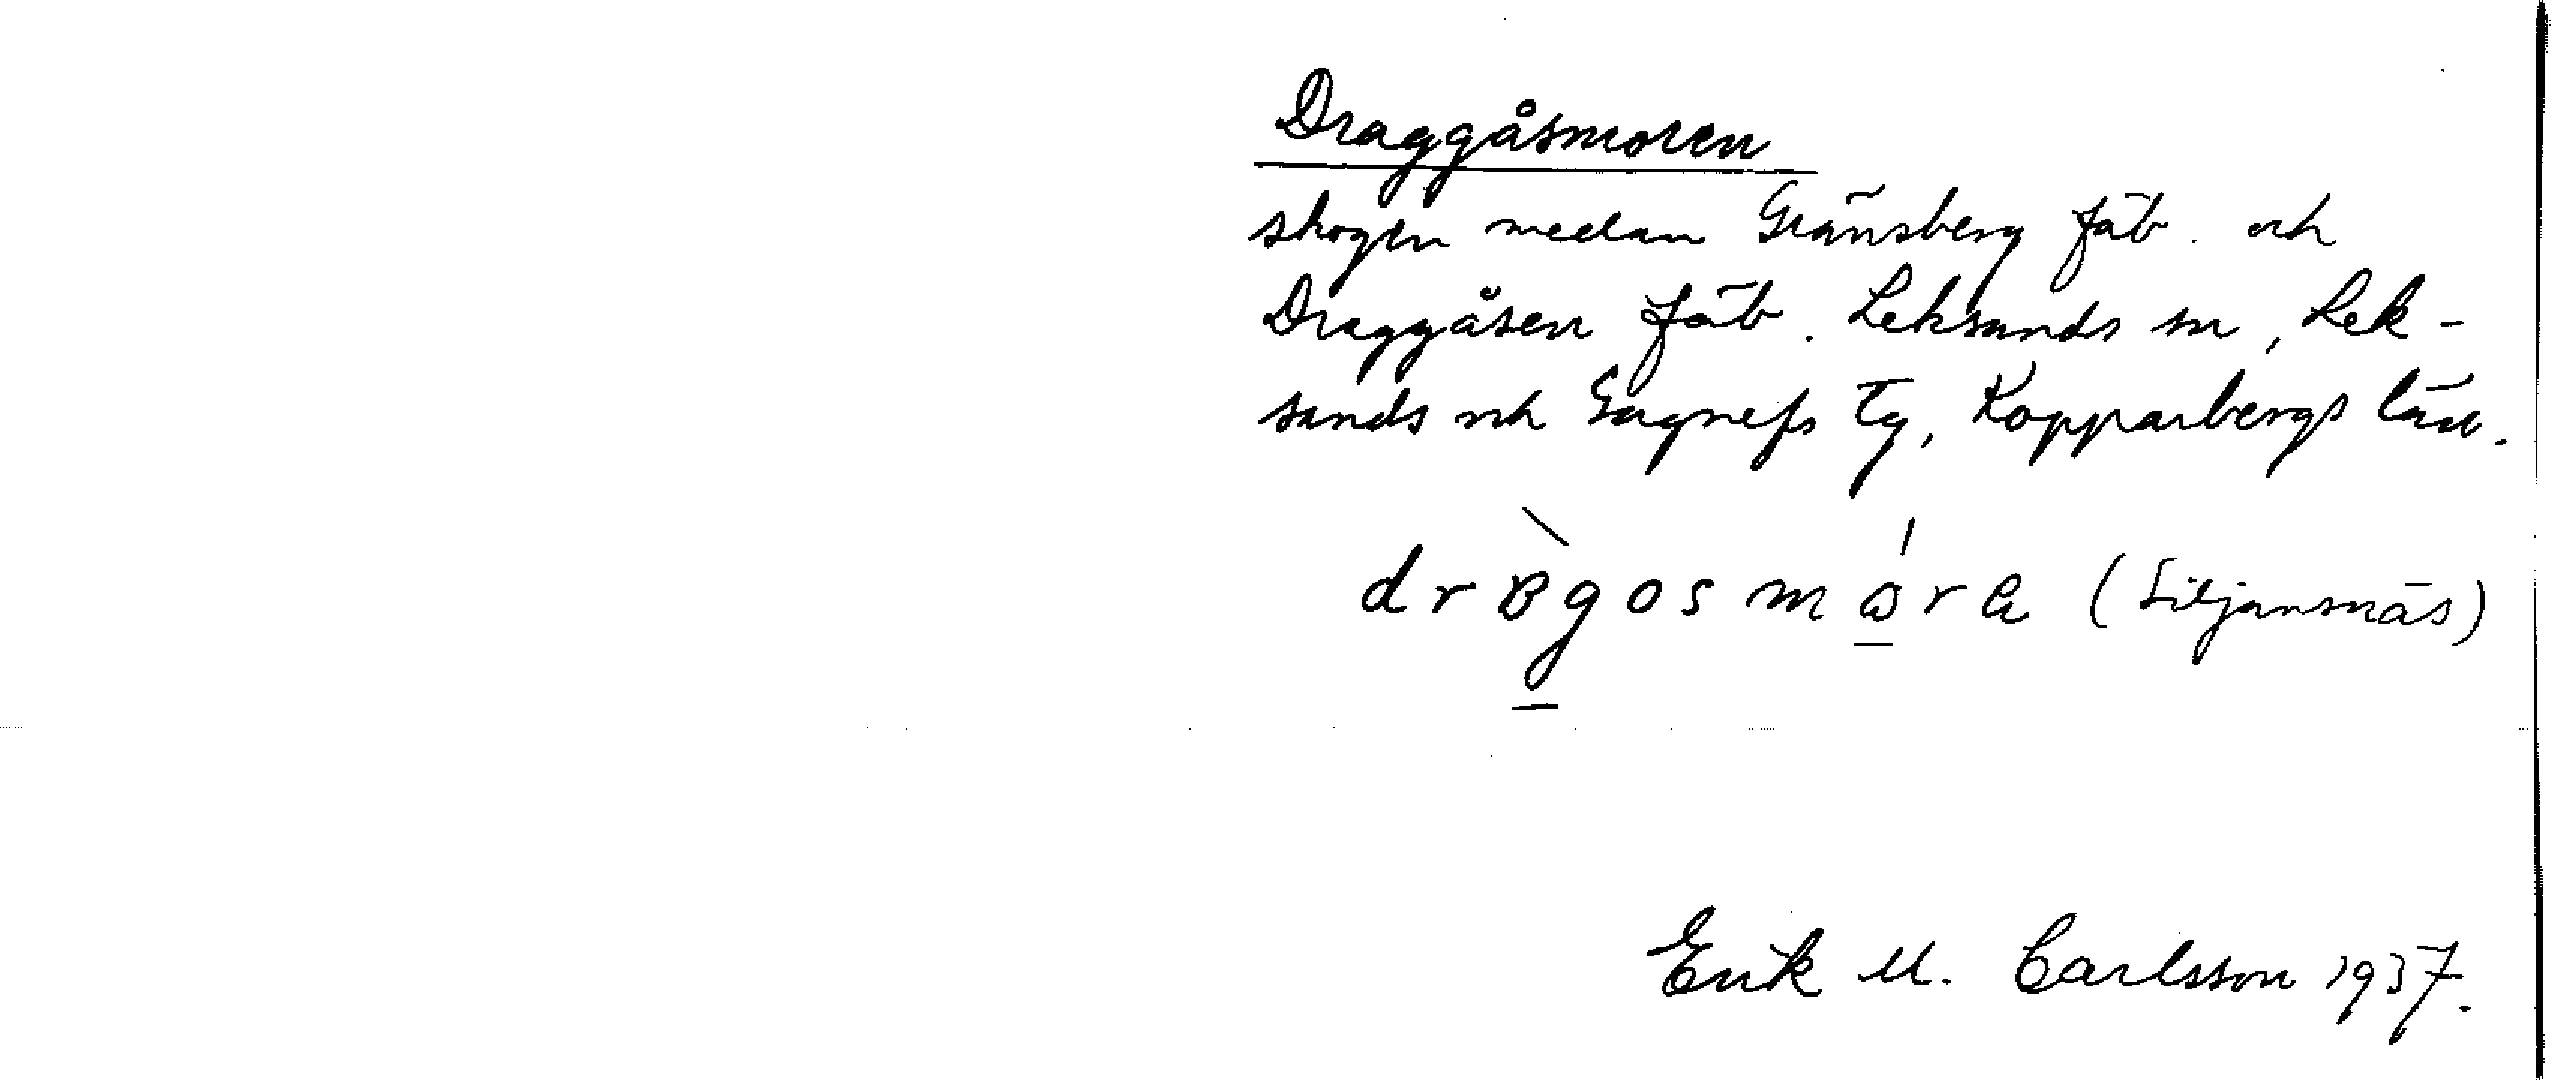 Draggåsmoren
skogen medan Gränsberg fäb. och
Draggåsen fäb. Leksands sn, Lek-
sands och Gagnefs Tg, Kopparbergs län.
(Siljansnäs)
Erik M. Carlsson 1937.